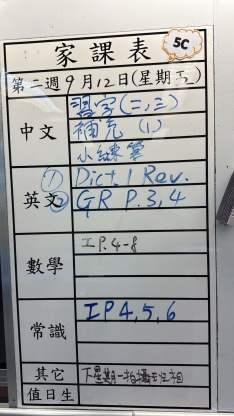 家課表 5C
第二週9月12日(星期五)
中文
習字(二,三)
補充(1)
小練筆
英文
① Dict.1 Rev.
② GR P.3,4
數學
IP.4-8
常識
IP4,5,6
其它
下星期一拍攝班相
值日生